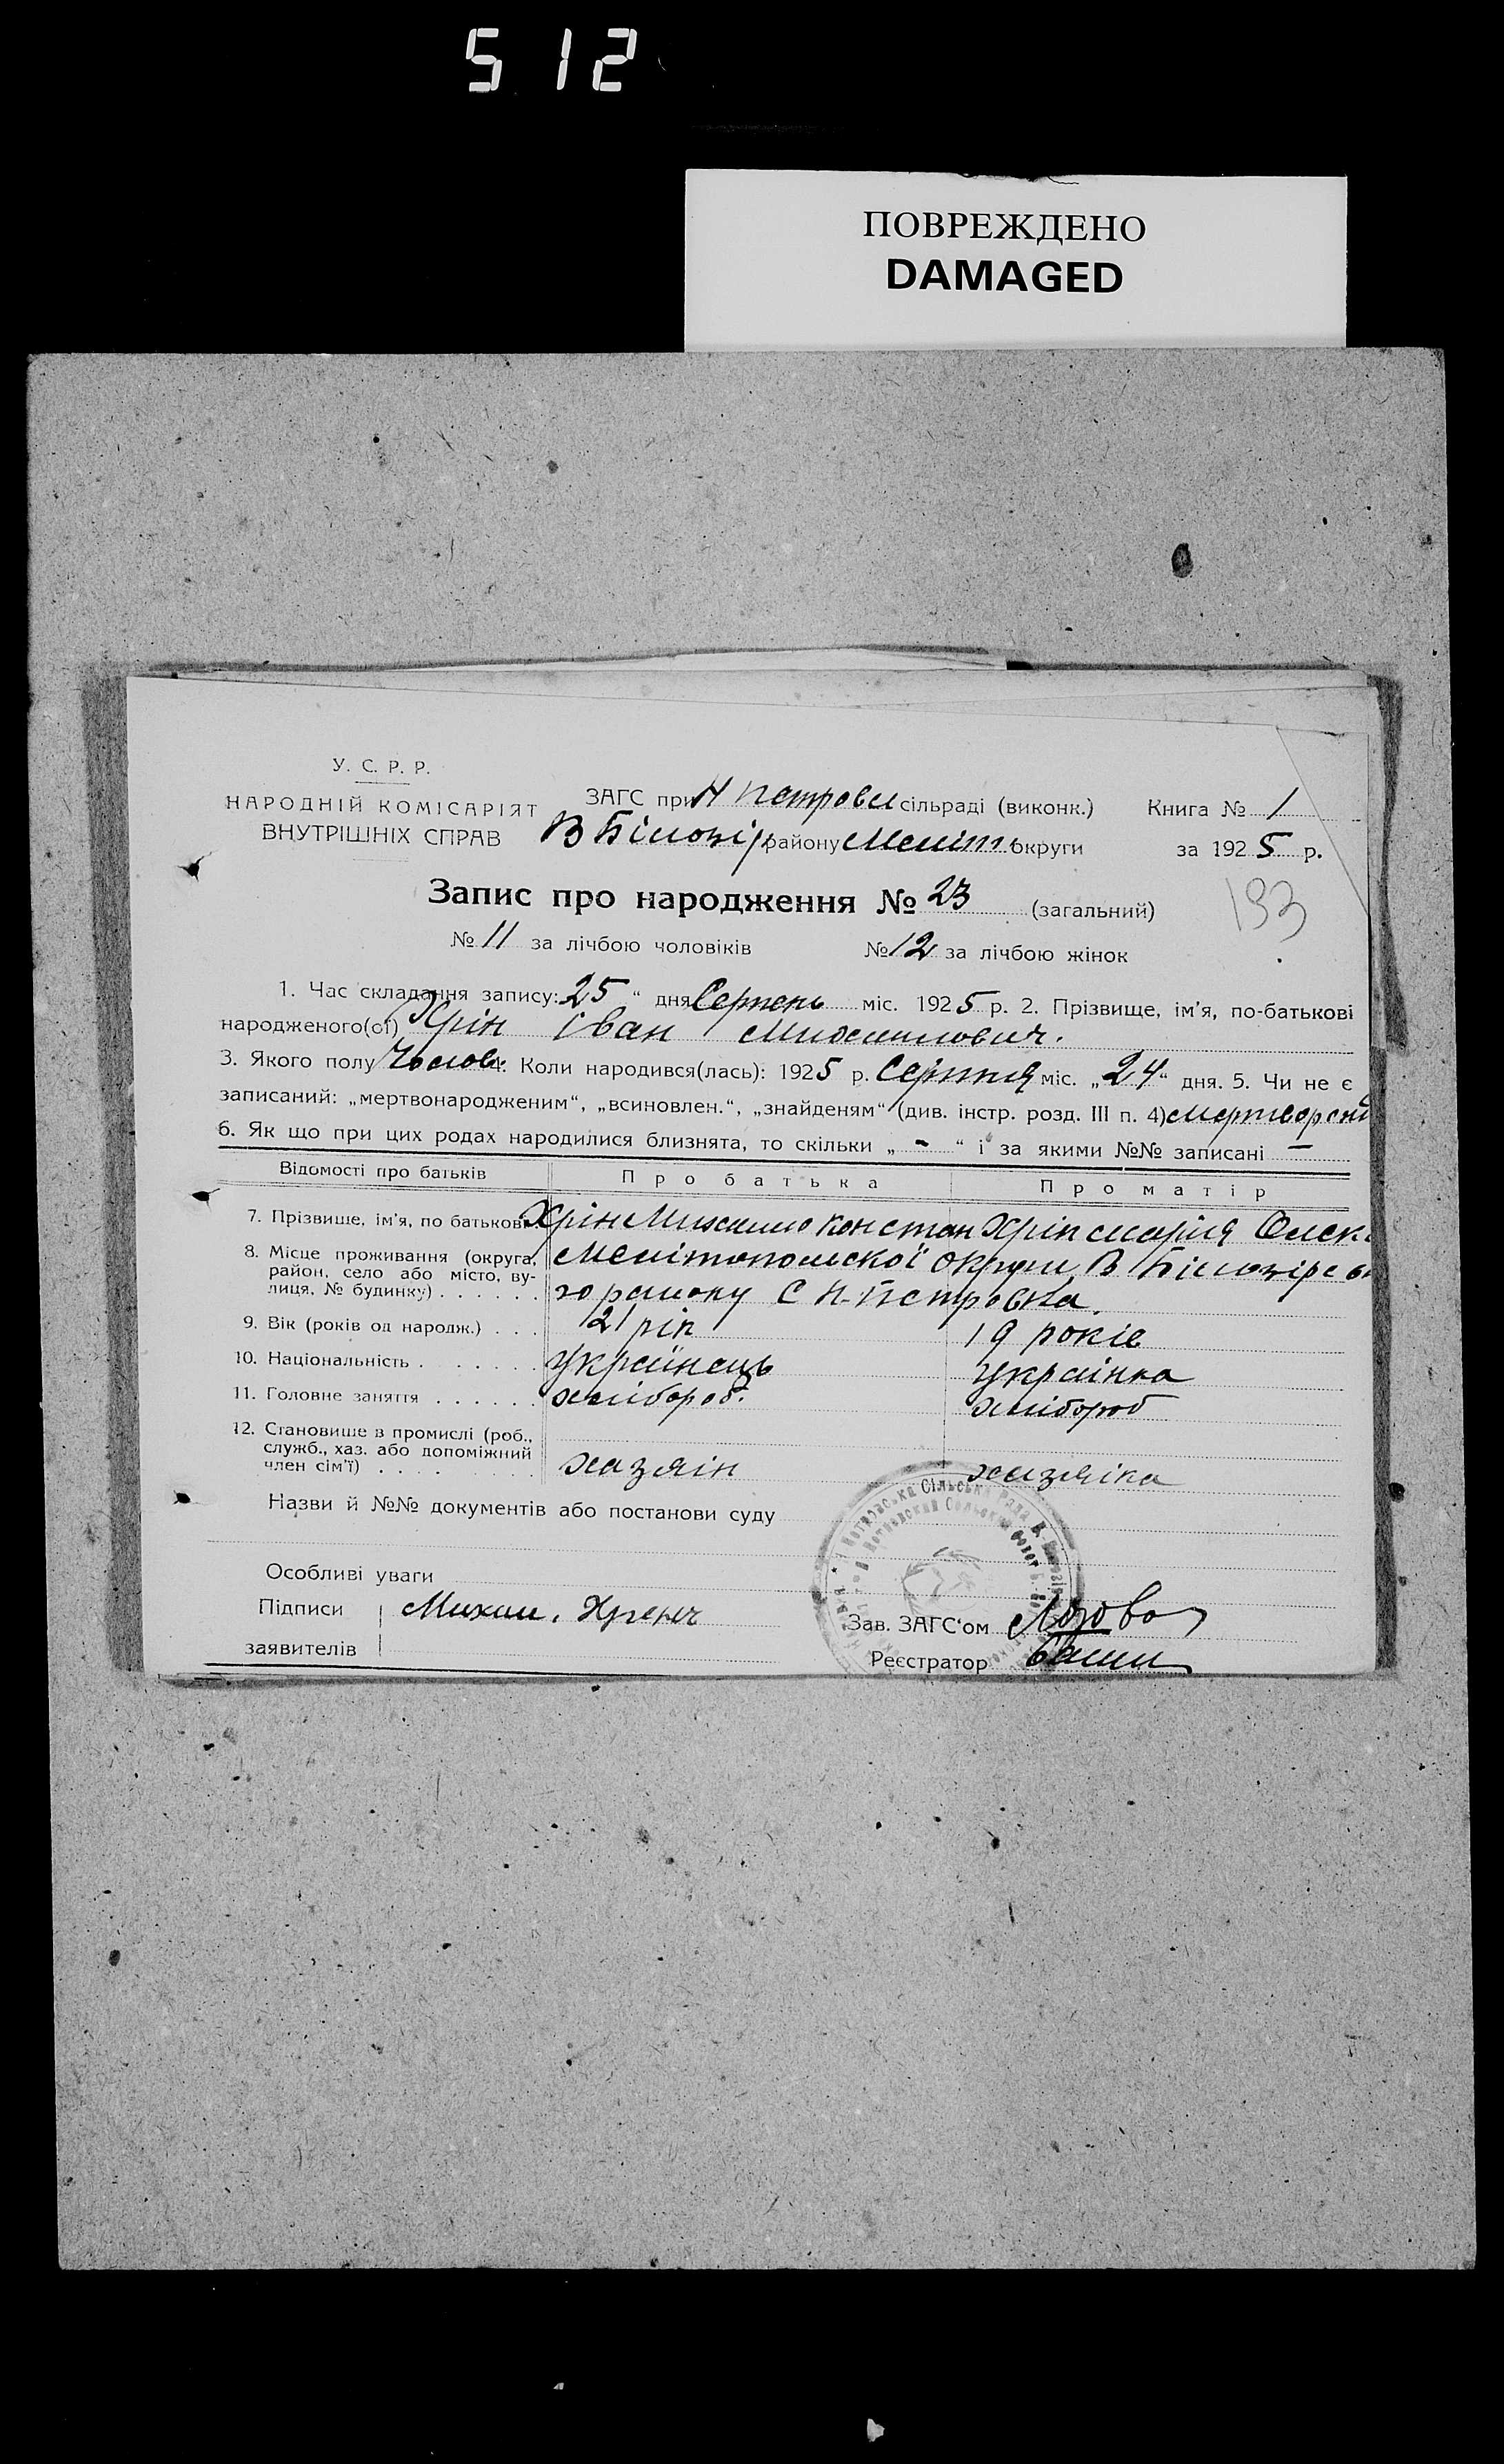 512
ПОВРЕЖДЕНО
DAMAGED
У. С. Р. Р.
НАРОДНІЙ КОМІСАРІЯТ
ВНУТРІШНІХ СПРАВ
ЗАГС при Н Петрови сільраді (виконк.)
В Білозір району Меліт. округи
Книга № 1
за 1925 р.
Запис про народження № 23 (загальний)
193
№ 11 за лічбою чоловіків № 12 за лічбою жінок
1. Час складання запису: 25 " дня Серпень міс. 1925 р. 2. Прізвище, ім'я, по-батькові
народженого(ої) Хрін Іван Михаилович.
3. Якого полу Чолов. 4. Коли народився(лась): 1925 р. Серпня міс. „ 24 " дня. 5. Чи не є
записаний: „мертвонародженим“, „всиновлен.“, „знайденям“ (див. інстр. розд. III п. 4)
6. Як що при цих родах народилися близнята, то скільки „ - “ і за якими №№ записані —
Відомості про батьків Про батька Про матір
7. Прізвище, ім'я, по батькові Хрін Михаило Констан Хрін Марія Олек
8. Місце проживання (округа, район, село або місто, вулиця, № будинку) Мелітопольскої округи В Білозірс
го району С Н-Петровка.
9. Вік (років од народж.) 21 рік 19 років
10. Національність українець українка
11. Головне заняття хлібороб. хлібороб
12. Становище в промислі (роб., служб., хаз. або допоміжний член сім'ї) хазяін хазяіка
Назви й №№ документів або постанови суду
Особливі уваги
Підписи заявителів Михаи.
Зав. ЗАГС'ом
Реєстратор